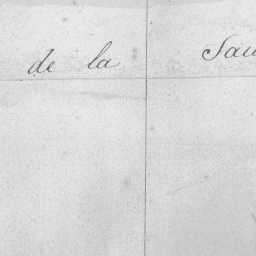 de la Sau